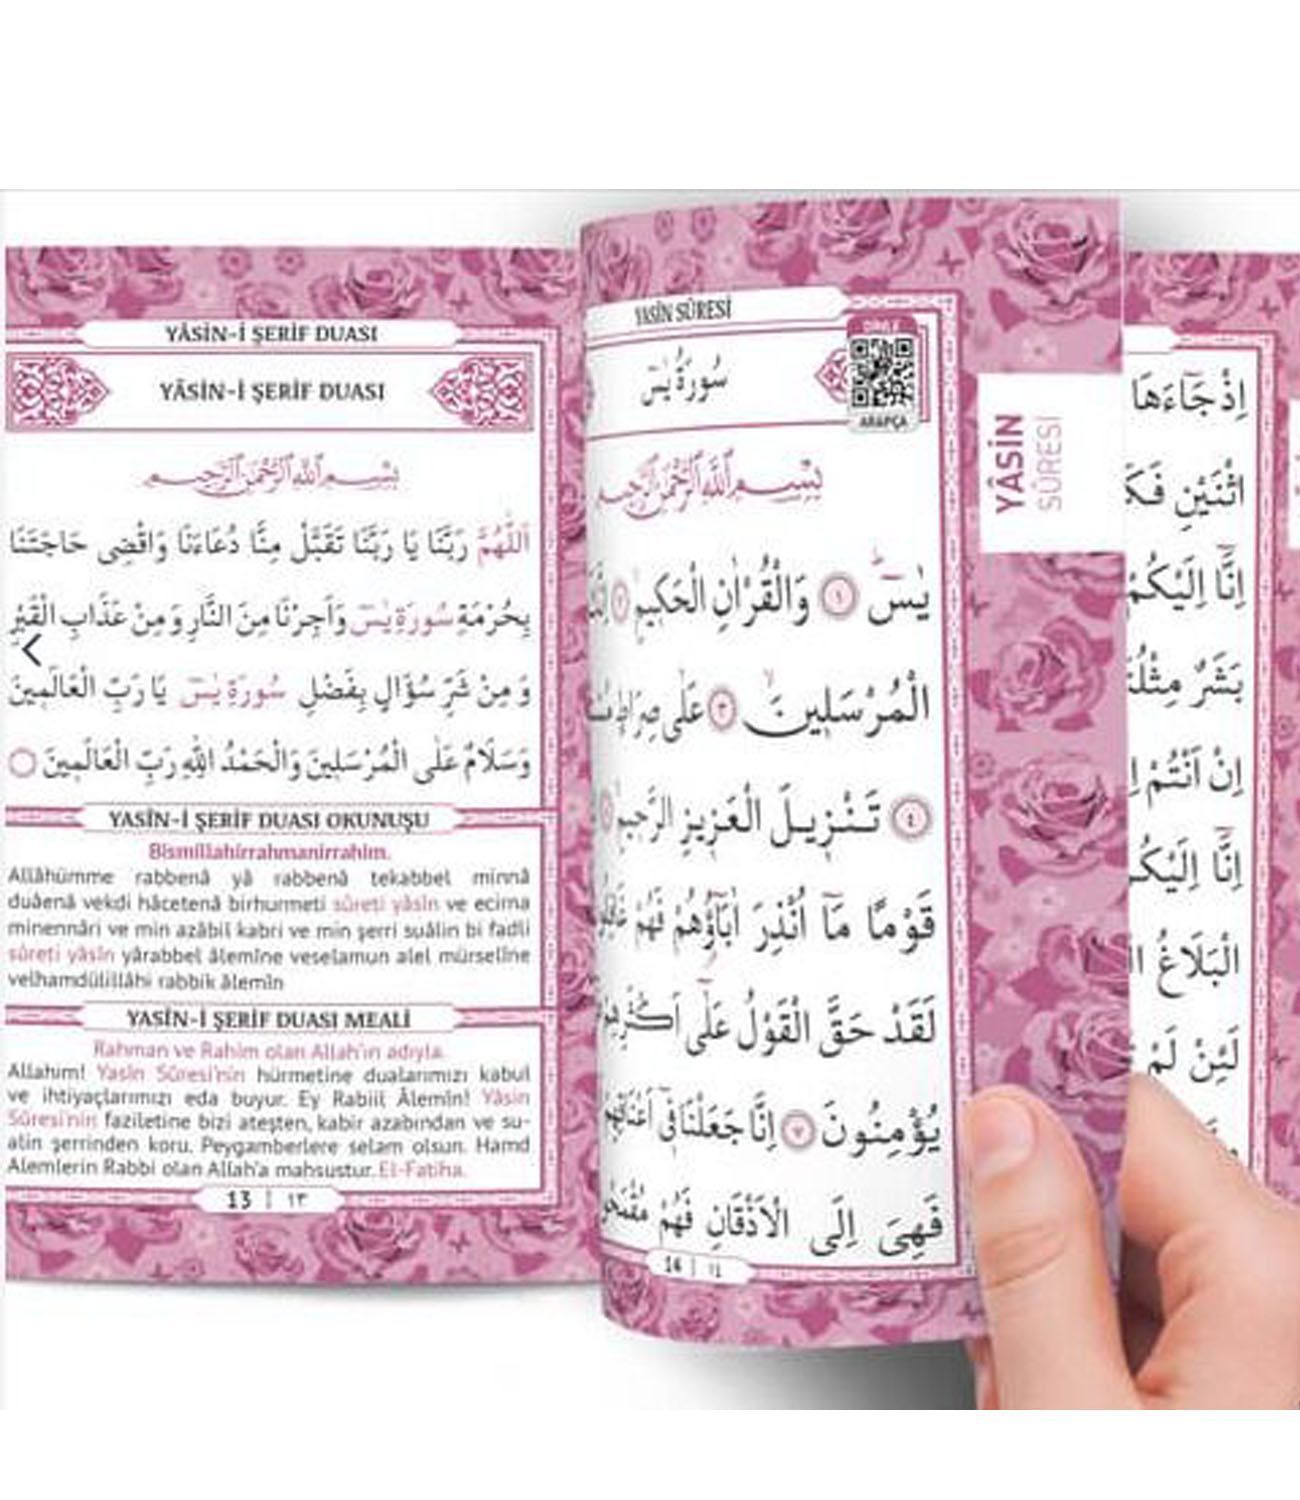 YÂSİN-İ ŞERİF DUASI
YÂSİN-İ ŞERİF DUASI
بِسْمِ اللّٰهِ الرَّحْمٰنِ الرَّحِيمِ
اَللّٰهُمَّ رَبَّنَا يَا رَبَّنَا تَقَبَّلْ مِنَّا دُعَاءَنَا وَاقْضِى حَاجَتَنَا
بِحُرْمَةِ سُورَةِ يٰسٓ وَاَجِرْنَا مِنَ النَّارِ وَمِنْ عَذَابِ الْقَبْرِ
وَمِنْ شَرِّ سُؤَالٍ بِفَضْلِ سُورَةِ يٰسٓ يَا رَبِّ الْعَالَمِينَ
وَسَلَامٌ عَلَى الْمُرْسَلِينَ وَالْحَمْدُ لِلّٰهِ رَبِّ الْعَالَمِينَ
YASİN-İ ŞERİF DUASI OKUNUŞU
Bismillahirrahmanirrahim.
Allâhümme rabbenâ yâ rabbenâ tekabbel minnâ
duâenâ vekdi hâcetenâ birhurmeti sûreti yâsîn ve ecirna
minennâri ve min azâbil kabri ve min şerri suâlin bi fadli
sûreti yâsîn yârabbel âlemîne veselamun alel mürselîne
velhamdülillâhi rabbik âlemîn
YASİN-İ ŞERİF DUASI MEALİ
Rahman ve Rahim olan Allah'ın adıyla.
Allahım! Yasin Sûresi'nin hürmetine dualarımızı kabul
ve ihtiyaçlarımızı eda buyur. Ey Rabiil Âlemîn! Yâsin
Sûresi'nin faziletine bizi ateşten, kabir azabından ve su-
alin şerrinden koru. Peygamberlere selam olsun. Hamd
Alemlerin Rabbi olan Allah'a mahsustur. El-Fatiha.
13 | ١٣
YASİN SÛRESİ
سُورَةُ يٰسٓ
DİNLE
ARAPÇA
بِسْمِ اللّٰهِ الرَّحْمٰنِ الرَّحِيمِ
يٰسٓ ١ وَالْقُرْاٰنِ الْحَكِيمِ ٢
الْمُرْسَلِينَ ٣ عَلٰى صِرَاطٍ
٤ تَنْزِيلَ الْعَزِيزِ الرَّحِيمِ
قَوْمًا مَٓا اُنْذِرَ اٰبَٓاؤُ۬هُمْ فَهُمْ
لَقَدْ حَقَّ الْقَوْلُ عَلٰٓى اَكْثَرِهِمْ
يُؤْمِنُونَ ٧ اِنَّا جَعَلْنَا فٓى اَعْنَاقِهِمْ
فَهِىَ اِلَى الْاَذْقَانِ فَهُمْ مُقْمَحُونَ
14 | ١٤
YÂSİN
SÛRESİ
اِذْ جَٓاءَهَا
اثْنَيْنِ
اِنَّٓا اِلَيْكُمْ
بَشَرٌ مِثْلُنَا
اِنْ اَنْتُمْ
اِنَّٓا اِلَيْكُمْ
الْبَلَاغُ
لَئِنْ لَمْ